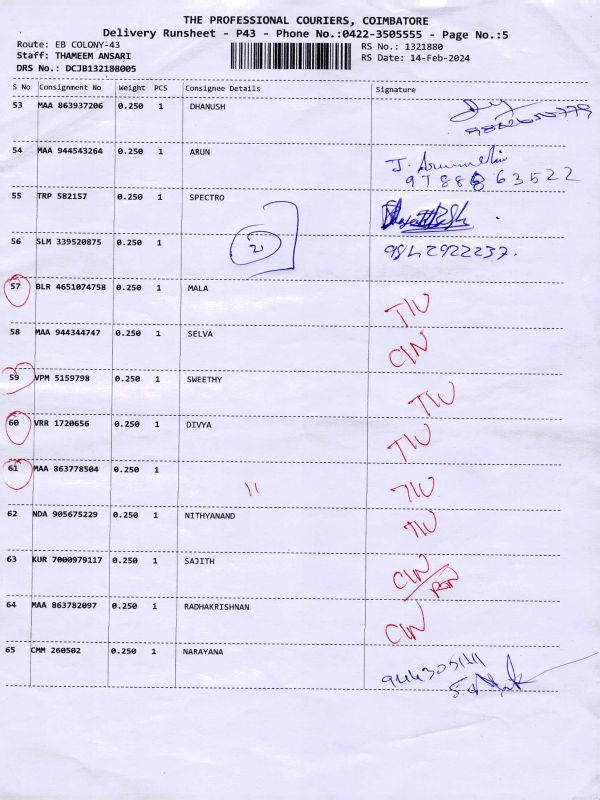 THE PROFESSIONAL COURIERS, COIMBATORE
Delivery Runsheet - P43 - Phone No.:0422-3505555 - Page No.:5
Route: EB COLONY-43 RS No.: 1321880
Staff: THAMEEM ANSARI RS Date: 14-Feb-2024
DRS No.: DCJB132188005
S No Consignment No Weight PCS Consignee Details Signature
53 MAA 863937206 0.250 1 DHANUSH
54 MAA 944543264 0.250 1 ARUN
9788663522
55 TRP 582157 0.250 1 SPECTRO
56 SLM 339520875 0.250 1 21 9842922237.
57 BLR 4651074758 0.250 1 MALA TIU
58 MAA 944344747 0.250 1 SELVA CIN
59 VPM 5159798 0.250 1 SWEETHY TIU
60 VRR 1720656 0.250 1 DIVYA TIU
61 MAA 863778504 0.250 1 11 TIU
62 NDA 905675229 0.250 1 NITHYANAND TIU
63 KUR 7000979117 0.250 1 SAJITH CIN
64 MAA 863782097 0.250 1 RADHAKRISHNAN CIN
65 CMM 260502 0.250 1 NARAYANA